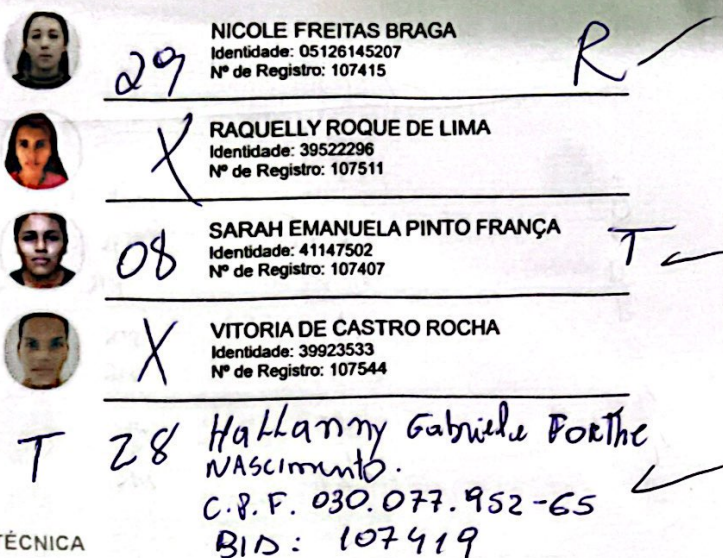 NICOLE FREITAS BRAGA
29 Identidade: 05126145207 R
Nº de Registro: 107415
RAQUELLY ROQUE DE LIMA
X Identidade: 39522296
Nº de Registro: 107511
SARAH EMANUELA PINTO FRANÇA T
08 Identidade: 41147502
Nº de Registro: 107407
VITORIA DE CASTRO ROCHA
X Identidade: 39923533
Nº de Registro: 107544
T 28 Hallanny Gabriele
NASCimento.
C.P.F. 030.077.952-65
TÉCNICA BID: 107419